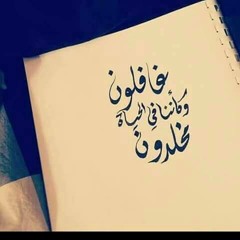 غافلون
وكأننا في الحياة
مخلدون